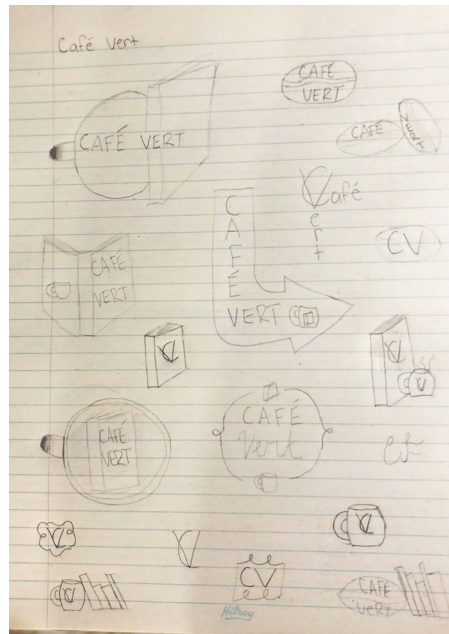 Café Vert
CAFÉ
VERT
CAFÉ VERT
CAFÉ
VERT
Café
ert
CAFÉ
VERT
CV
CAFÉ
VERT
CV
CV
V
CAFÉ
VERT
CAFÉ
Vert
CV
CV
CV
CV
CV
CAFÉ
VERT
Hilroy